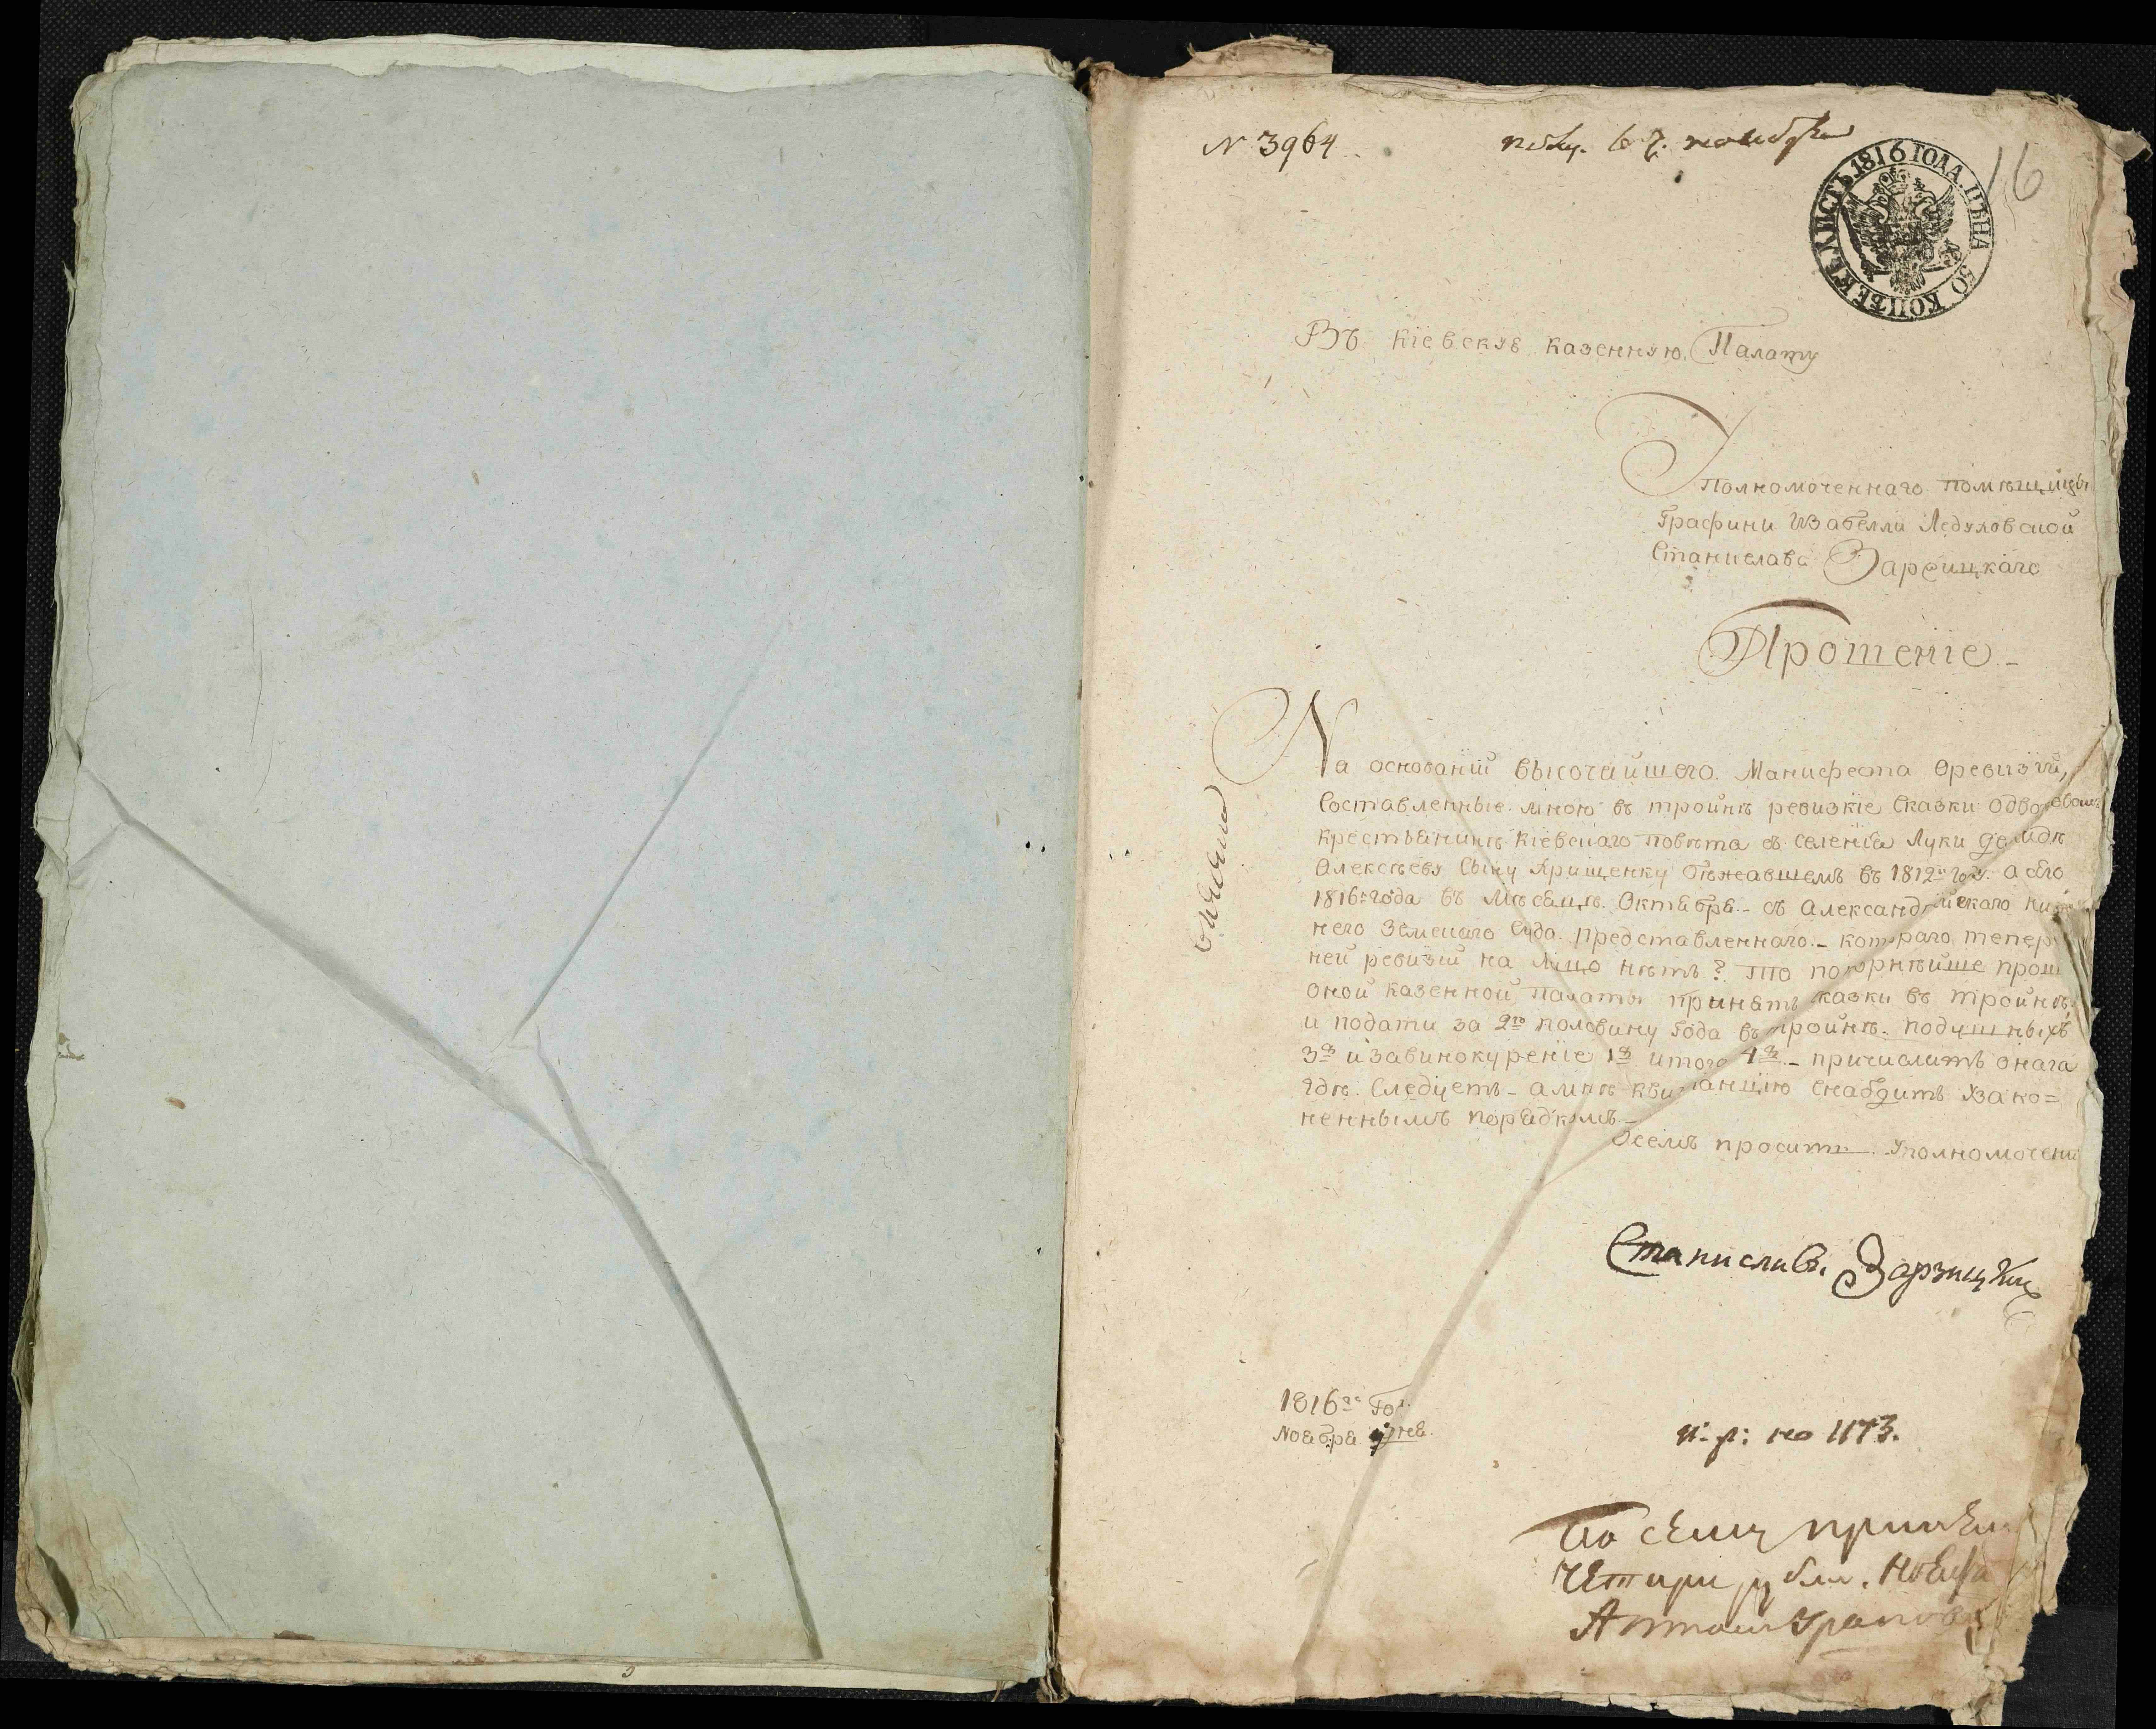 N 3964
7. ноября
16
ЛИСТЪ 1816 ГОДА. ЦѢНА 50 КОПѢЕКЪ
Въ Кіевскую казенную Палату
Уполномоченнаго помѣщицы
Графини Изабелли Ледуховской
Станислава Зарзицкаго
Прошеніе
На основаніи высочайшего Манифеста оревизіи,
Составленные мною въ тройнѣ ревизкіе Сказки
крестьянинѣ Кіевскаго повѣта съ селенія Луки
Алексѣеву Сыну Ярищенку бѣжавшемъ въ 1812м году а сего
1816го года въ Мѣсяцѣ Октября съ Александрийскаго
него Земскаго Суда представленнаго котораго тепер
ней ревизіи на лицо нѣтъ? то покорнѣйше прош
оной казенной Палаты принять сказки въ тройнѣ,
и подати за 2ю половину Года въ тройнѣ подушныхъ
3р и завинокуреніе 1р итого 4р причислить онага
гдѣ Следуетъ а мнѣ квитанцію снабдить Узако=
неннымъ порядкомъ
Осемъ проситъ Уполномочены
Станиславъ Зарзицкий
1816го Год.
Ноября 7 дня
по 1173.
По сему принялъ
Четири рубли.